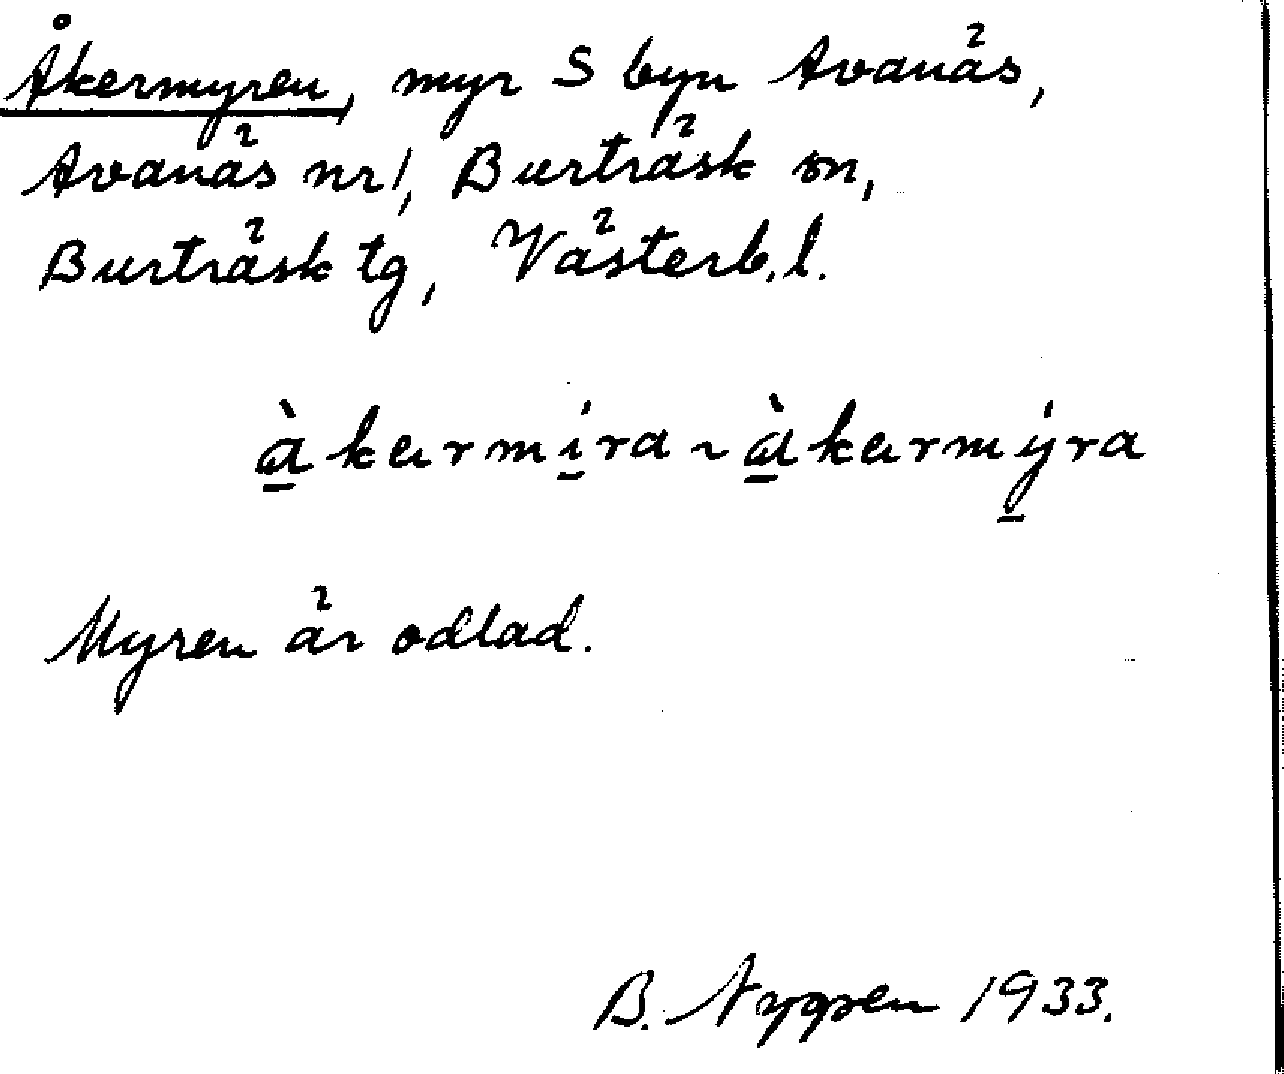 Åkermyren, myr S byn Avanäs,
Avanäs nr 1, Burträsk sn,
Burträsk tg, Västerb. l.
à̱kермíra ~ à̱kermýra
Myren är odlad.
B. Nygren 1933.